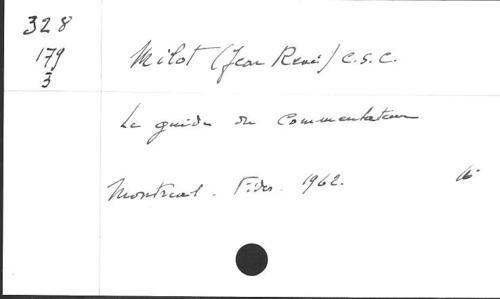 328
179
3
Milot (Jean René) c.s.c.
Le guide du commentateur
Montréal. Fides. 1962.